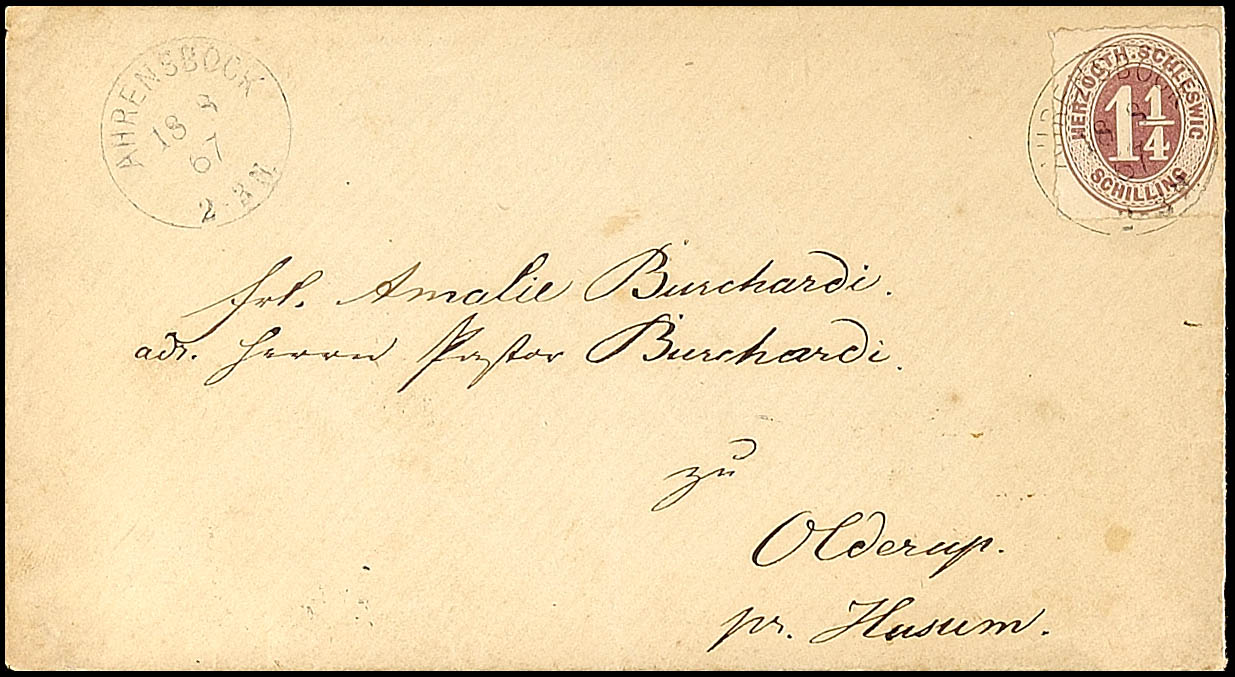 AHRENSBOCK
18 8
67
2-3 N.
HERZOGTH. SCHLESWIG
1 1/4
SCHILLING
Frl. Amalie Burchardi.
adr. Herrn Pastor Burchardi.
zu
Olderup.
pr. Husum.